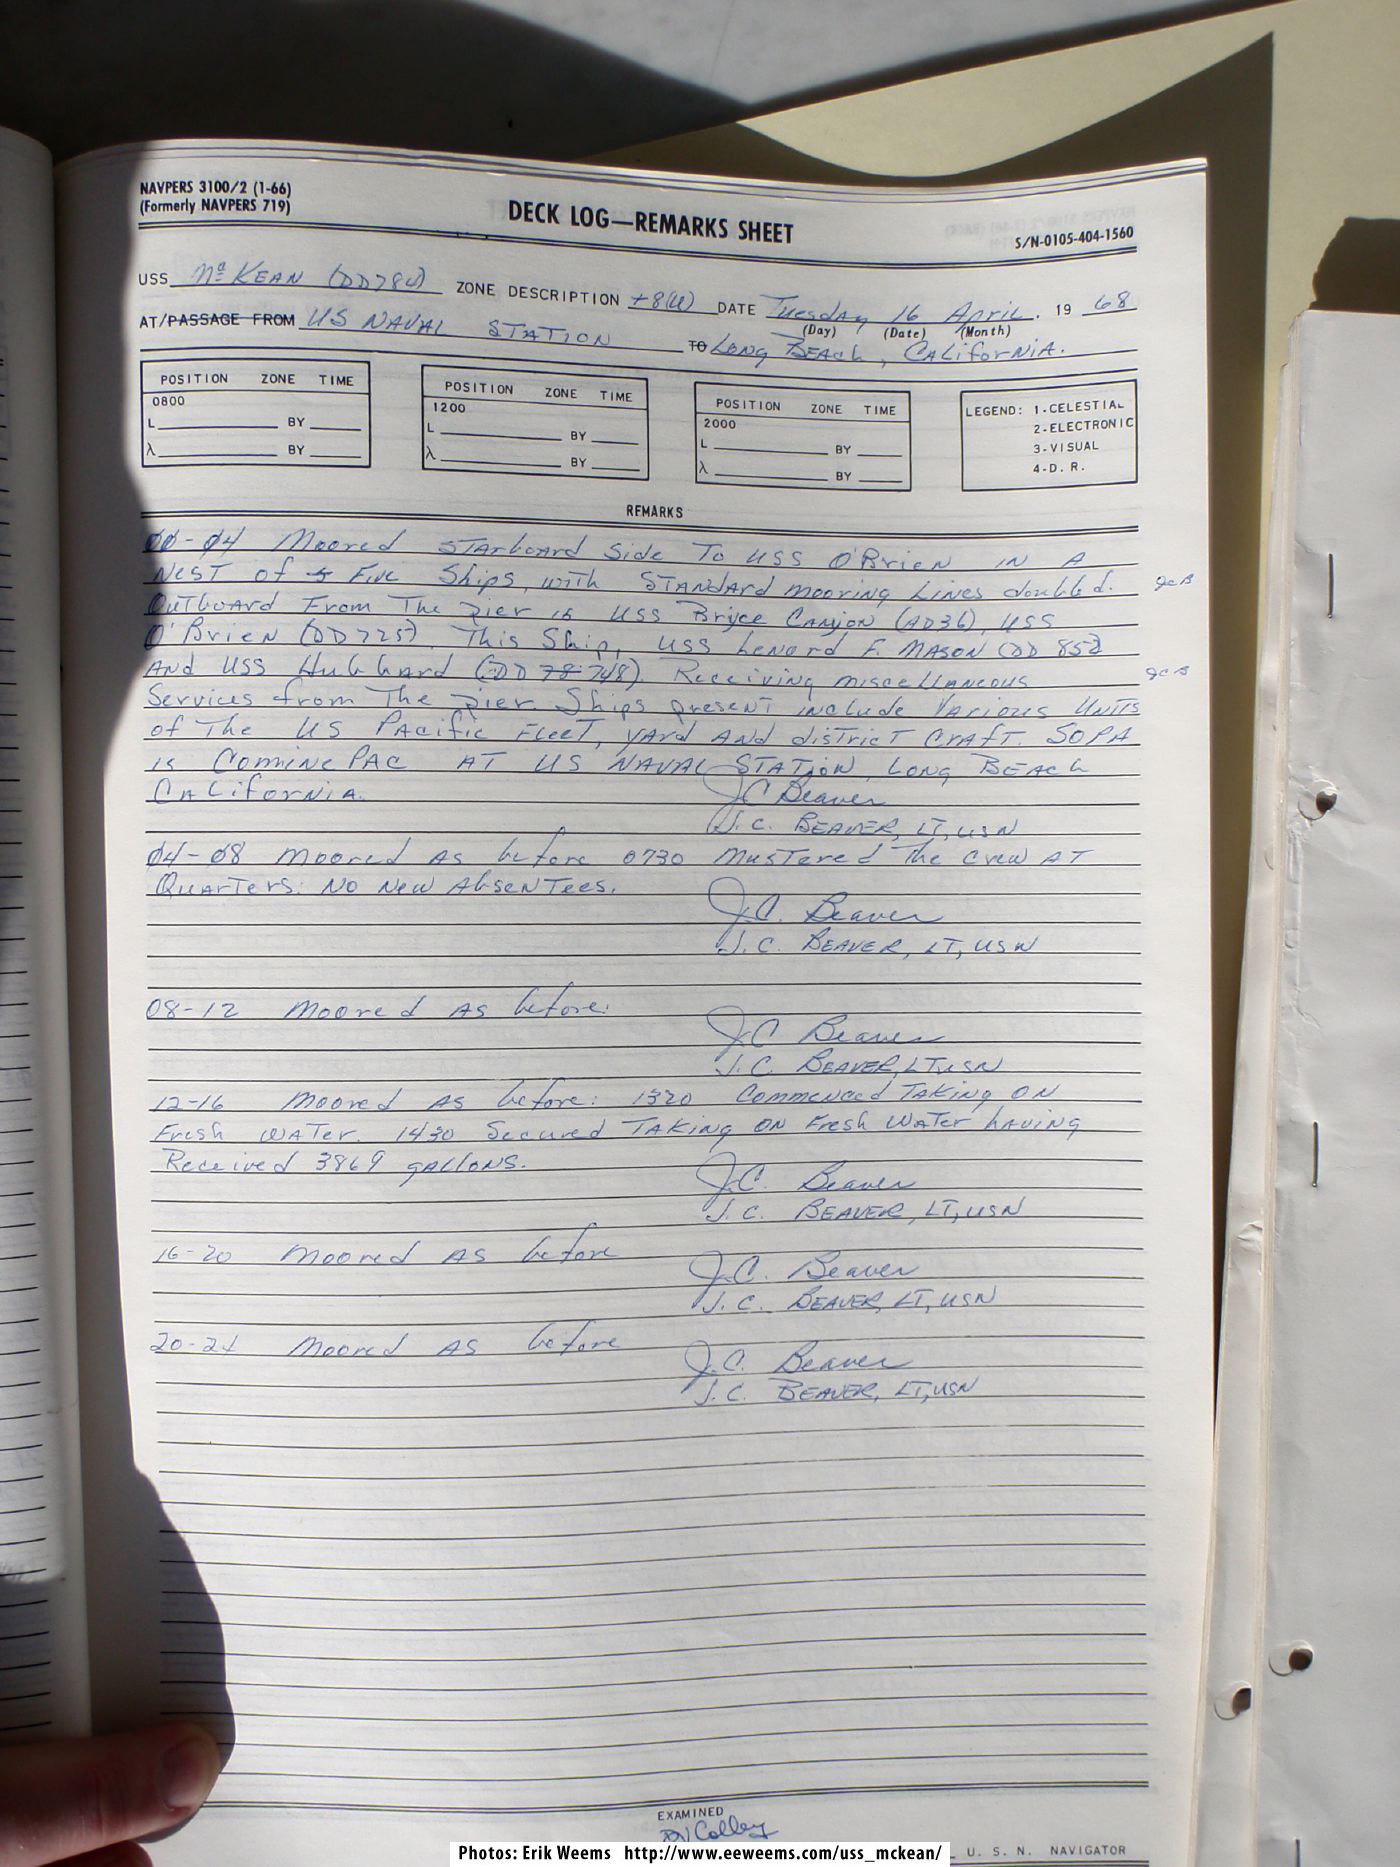 NAVPERS 3100/2 (1-66)
(Formerly NAVPERS 719)
DECK LOG—REMARKS SHEET
S/N-0105-404-1560
USS Mc KEAN (DD784) ZONE DESCRIPTION +8(U) DATE Tuesday 16 April . 19 68
(Day) (Date) (Month)
AT/PASSAGE FROM US NAVAL STATION TO Long BEAch, CALiforniA.
POSITION ZONE TIME
0800
L BY
λ BY
POSITION ZONE TIME
1200
L BY
λ BY
POSITION ZONE TIME
2000
L BY
λ BY
LEGEND: 1-CELESTIAL
2-ELECTRONIC
3-VISUAL
4-D. R.
REMARKS
00-04 Moored STArboard Side To USS O'Brien IN A
NEST of 5 Five Ships, with STANdard mooring Lines doubled. JCB
OuTboard From The pier is USS Bryce Canyon (AD36), USS
O'Brien (DD725), This Ship, USS Lenord F. MASON (DD 852)
AND USS Hubbard (DD 78 748). Receiving miscellaneous JCB
Services from The pier. Ships present include Various UniTs
of The US Pacific FleeT, yard AND districT crAfT. SOPA
is CominePAC AT US NAVAL STATION, Long BEAch
CALiforniA.
J.C. Beaver
J.C. BEAVER, LT, USN
04-08 Moored As before 0730 MusTered The crew AT
QuArTers: No New AbsenTees.
J.C. Beaver
J.C. BEAVER, LT, USN
08-12 Moored As before:
J.C. Beaver
J.C. BEAVER, LT, USN
12-16 Moored As before: 1320 Commenced TAKing ON
Fresh WATer. 1430 Secured TAKing ON Fresh WATer hAving
Received 3869 gALLONS.
J.C. Beaver
J.C. BEAVER, LT, USN
16-20 Moored As before
J.C. Beaver
J.C. BEAVER, LT, USN
20-24 Moored AS before
J.C. Beaver
J.C. BEAVER, LT, USN
EXAMINED
Colley
U. S. N. NAVIGATOR
Photos: Erik Weems http://www.eeweems.com/uss_mckean/